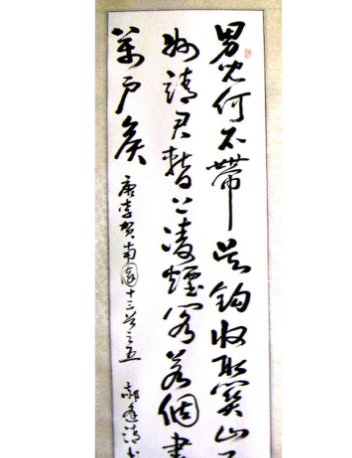 男儿何不带吴钩收取关山五
州请君暂上凌烟阁若个书
万户侯
唐李贺南园十三首之五 郝逢清书